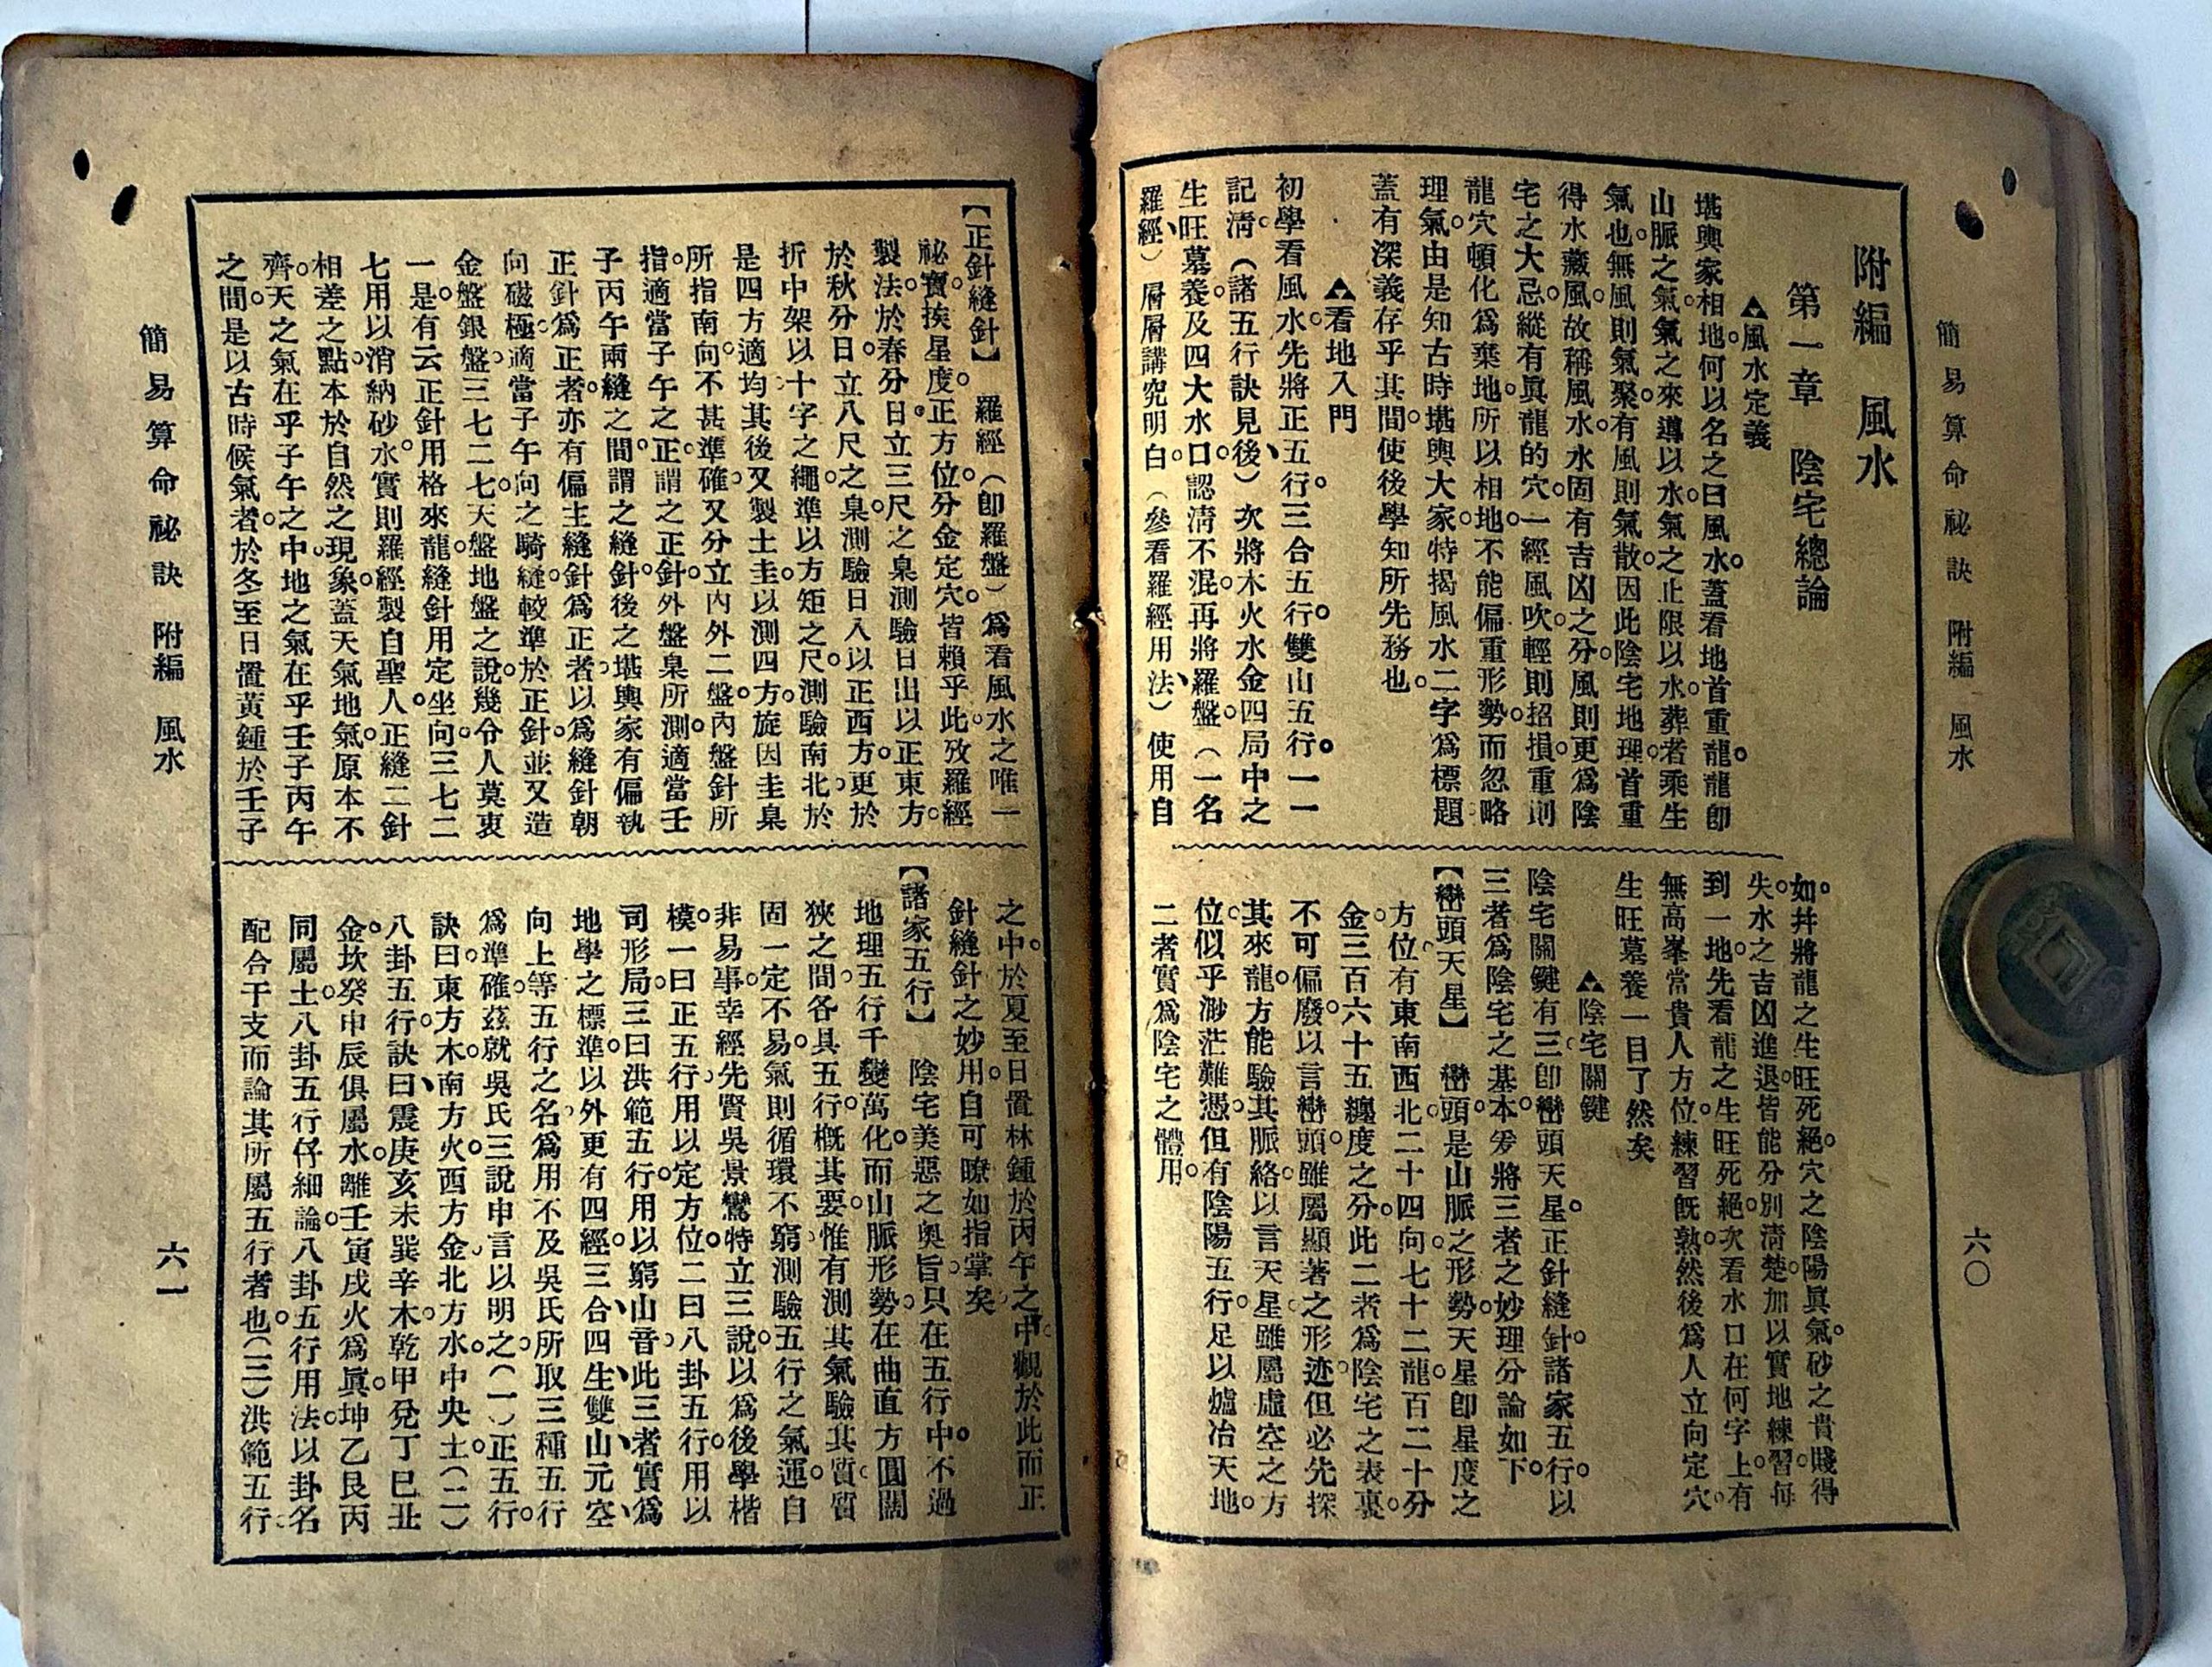 簡易算命祕訣 附編 風水 六〇
附編 風水
第一章 陰宅總論
▲風水定義
堪輿家相地。何以名之曰風水。蓋看地首重龍。龍即
山脈之氣。氣之來。導以水。氣之止。限以水。葬者乘生
氣也。無風則氣聚。有風則氣散。因此陰宅地理。首重
得水藏風。故稱風水。水固有吉凶之分。風則更爲陰
宅之大忌。縱有眞龍的穴。一經風吹。輕則招損。重則
龍穴頓化爲棄地。所以相地。不能偏重形勢。而忽略
理氣。由是知古時堪輿大家。特揭風水二字爲標題
蓋有深義存乎其間。使後學知所先務也。
▲看地入門
初學看風水。先將正五行。三合五行。雙山五行。一一
記清。(諸五行訣見後)次將木火水金四局中之
生旺墓養。及四大水口。認清不混。再將羅盤。(一名
羅經)層層講究明白。(參看羅經用法)使用自
如。幷將龍之生旺死絕。穴之陰陽眞氣。砂之貴賤得
失。水之吉凶進退。皆能分別清楚。加以實地練習。每
到一地。先看龍之生旺死絕。次看水口在何字上。有
無高峯當貴人方位。練習旣熟。然後爲人立向定穴。
生旺墓養。一目了然矣
▲陰宅關鍵
陰宅關鍵有三。卽巒頭天星。正針縫針。諸家五行。以
三者爲陰宅之基本。爰將三者之妙理分論如下。
【巒頭天星】 巒頭是山脈之形勢。天星卽星度之
方位。有東南西北。二十四向。七十二龍。百二十分
金。三百六十五纏度之分。此二者爲陰宅之表裏。
不可偏廢。以言巒頭。雖屬顯著之形迹。但必先探
其來龍。方能驗其脈絡。以言天星。雖屬虛空之方
位。似乎渺茫難憑。但有陰陽五行。足以爐冶天地。
二者實爲陰宅之體用。
【正針縫針】 羅經(卽羅盤)爲看風水之唯一
祕寶。挨星度。正方位。分金定穴。皆賴乎此。攷羅經
製法。於春分日。立三尺之臬。測驗日出以正東方。
於秋分日。立八尺之臬。測驗日入以正西方。更於
折中架以十字之繩。準以方矩之尺。測驗南北。於
是四方適均。其後又製土圭。以測四方。旋因圭臬
所指南向。不甚準確。又分立內外二盤。內盤針所
指。適當子午之正。謂之正針。外盤臬所測。適當壬
子丙午兩縫之間。謂之縫針。後之堪輿家。有偏執
正針爲正者。亦有偏主縫針爲正者。以爲縫針朝
向磁極。適當子午向之騎縫。較準於正針。並又造
金盤銀盤。三七二七。天盤地盤之說。幾令人莫衷
一是。有云正針用格來龍。縫針用定坐向。三七二
七用以消納砂水。實則羅經製自聖人。正縫二針
相差之點。本於自然之現象。蓋天氣地氣。原本不
齊。天之氣在乎子午之中。地之氣在乎壬子丙午
之間。是以古時候氣者。於冬至日置黃鍾於壬子
之中。於夏至日置林鍾於丙午之中。觀於此而正
針縫針之妙用。自可暸如指掌矣
【諸家五行】 陰宅美惡之奥旨。只在五行中。不過
地理五行。千變萬化。而山脈形勢。在曲直方圓闊
狹之間。各具五行槪其要。惟有測其氣。驗其質。質
固一定不易。氣則循環不窮。測驗五行之氣運。自
非易事。幸經先賢吳景鸞。特立三說。以爲後學楷
模。一曰正五行。用以定方位。二曰八卦五行。用以
司形局。三曰洪範五行。用以窮山音。此三者實爲
地學之標準。以外更有四經、三合、四生、雙山、元空、
向上等五行之名。爲用不及吳氏。所取三種五行
爲準確。茲就吳氏三說。申言以明之。(一)正五行。
訣曰。東方木。南方火。西方金。北方水。中央土。(二)
八卦五行。訣曰、震庚亥未巽辛木。乾甲兌丁巳丑
金。坎癸申辰俱屬水。離壬寅戌火爲眞。坤乙艮丙
同屬土。八卦五行仔細論。八卦五行用法。以卦名
配合干支而論其所屬五行者也。(三)洪範五行。
簡易算命祕訣 附編 風水 六一